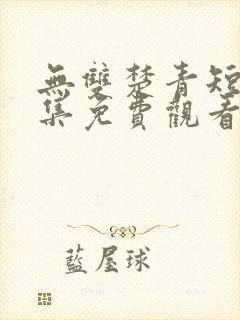 無雙楚青短
集免費觀看
藍屋球